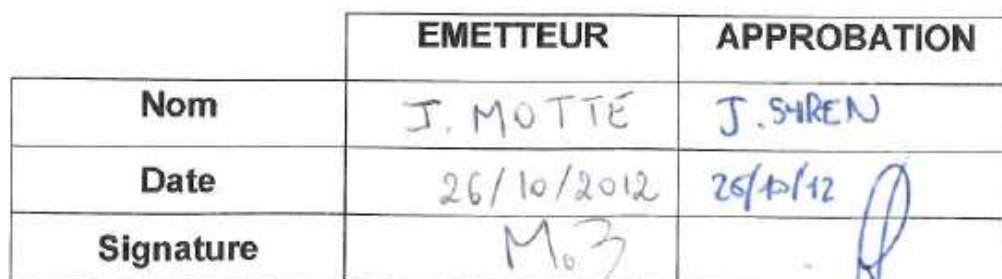 EMETTEUR APPROBATION
Nom J. MOTTE J. SYREN
Date 26/10/2012 26/10/12
Signature